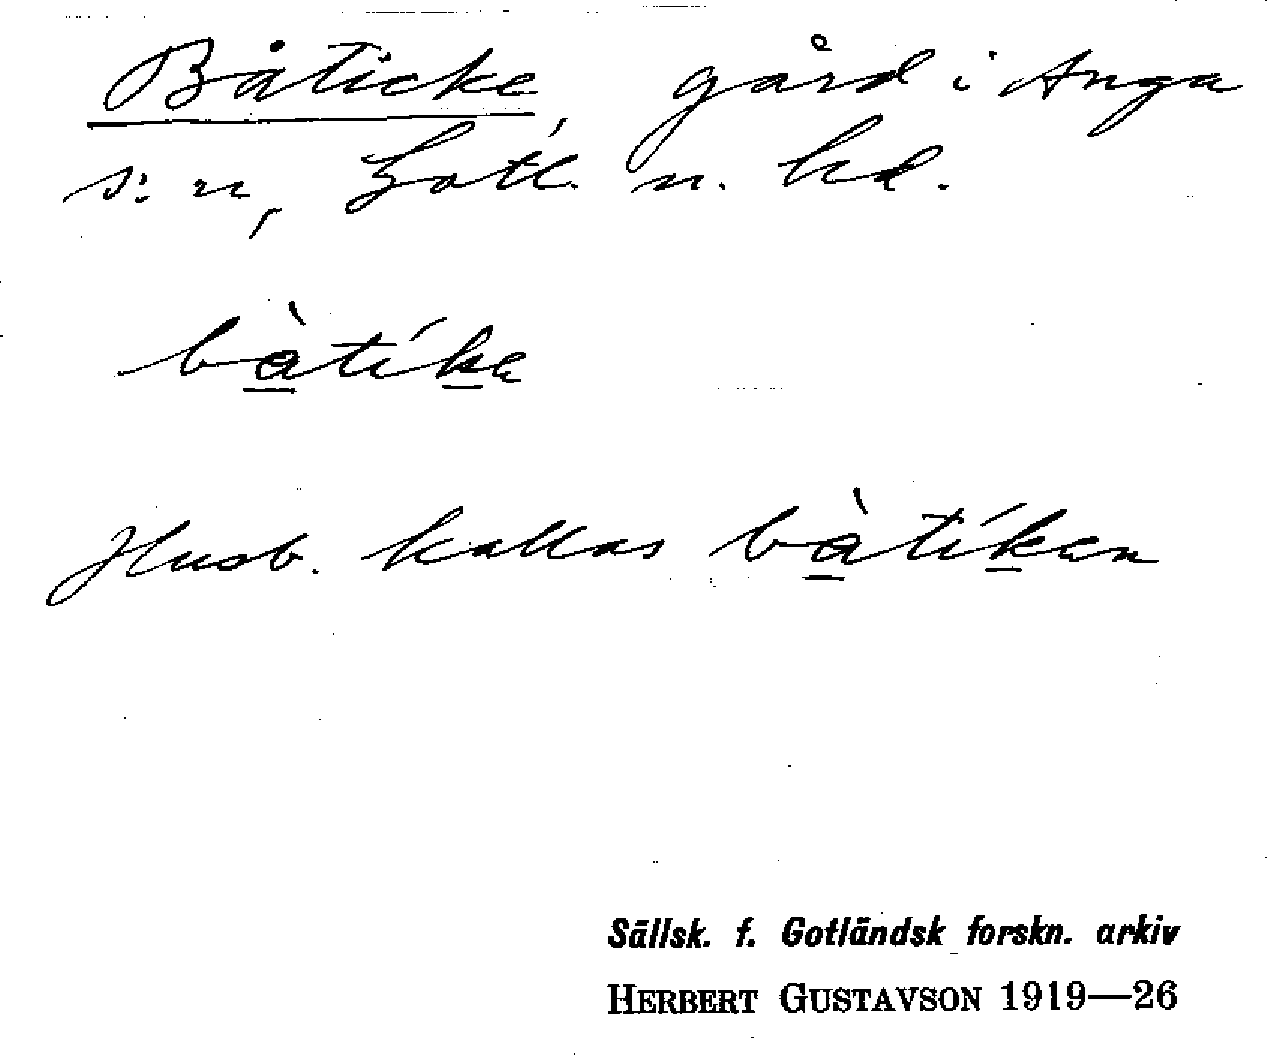 Båticke, gård i Anga
s:n, Gotl. n. hd.
bàtíka
Husb. kallas bàtíkan
Sällsk. f. Gotländsk forskn. arkiv
HERBERT GUSTAVSON 1919—26